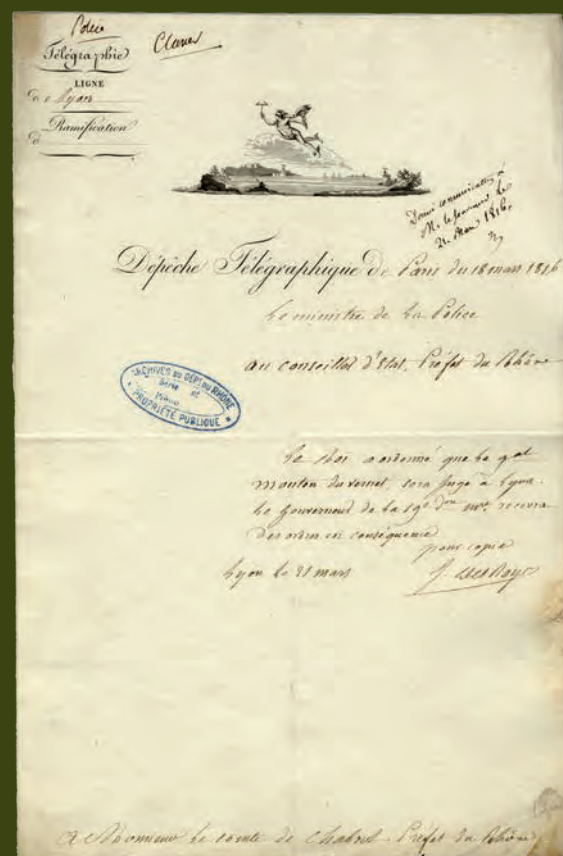 Police
Télégraphie
Classer
LIGNE
de Lyon
Ramification
d
Donné communication à
M. le Gouverneur le
21 Mars 1816
Dépêche Télégraphique de Paris du 18 mars 1816
Le ministre de la Police
au conseiller d'Etat, Préfet du Rhône
ARCHIVES DU DÉPT DU RHÔNE
Série et
PROPRIÉTÉ PUBLIQUE
Le Roi a ordonné que le gal
mouton duvernet, sera jugé à Lyon.
Le Gouverneur de la 19e don mre recevra
des ordres en conséquence
pour copie
Lyon le 21 mars
A Monsieur le comte de Chabrol Préfet du Rhône